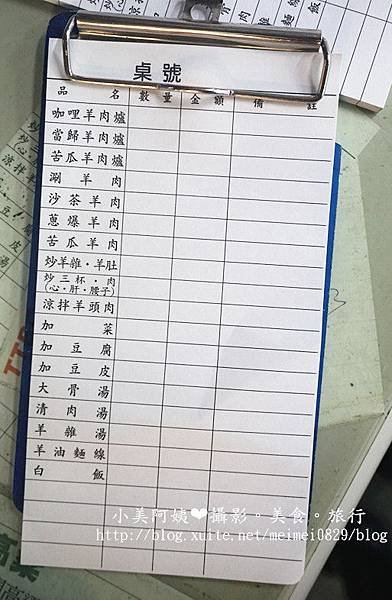 桌號
品名 數量 金額 備註
咖哩羊肉爐
當歸羊肉爐
苦瓜羊肉爐
涮羊肉
沙茶羊肉
蔥爆羊肉
苦瓜羊肉
炒羊雜·羊肚
炒三杯·肉
(心·肝·腰子)
涼拌羊頭肉
加菜
加豆腐
加豆皮
大骨湯
清肉湯
羊雜湯
羊油麵線
白飯
小美阿姨❤攝影。美食。旅行
http://blog.xuite.net/meimei0829/blog